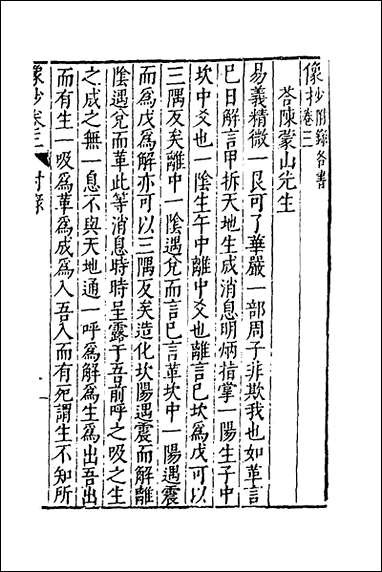 像抄卷三附錄答書
荅陳蒙山先生
易義精微一艮可了華嚴一部周子非欺我也如革言
巳日解言甲拆天地生成消息明炳指掌一陽生子中
坎中爻也一陰生午中離中爻也離言己坎為戊可以
三隅反矣離中一陰遇兌而言巳言革坎中一陽遇震
而為戊為解亦可以三隅反矣造化坎陽遇震而解離
陰遇兌而革此等消息時時呈露于吾前呼之吸之生
之成之無一息不與天地通一呼為解為生為出吾出
而有生一吸為革為成為入吾入而有死謂生不知所
像抄卷三 附錄